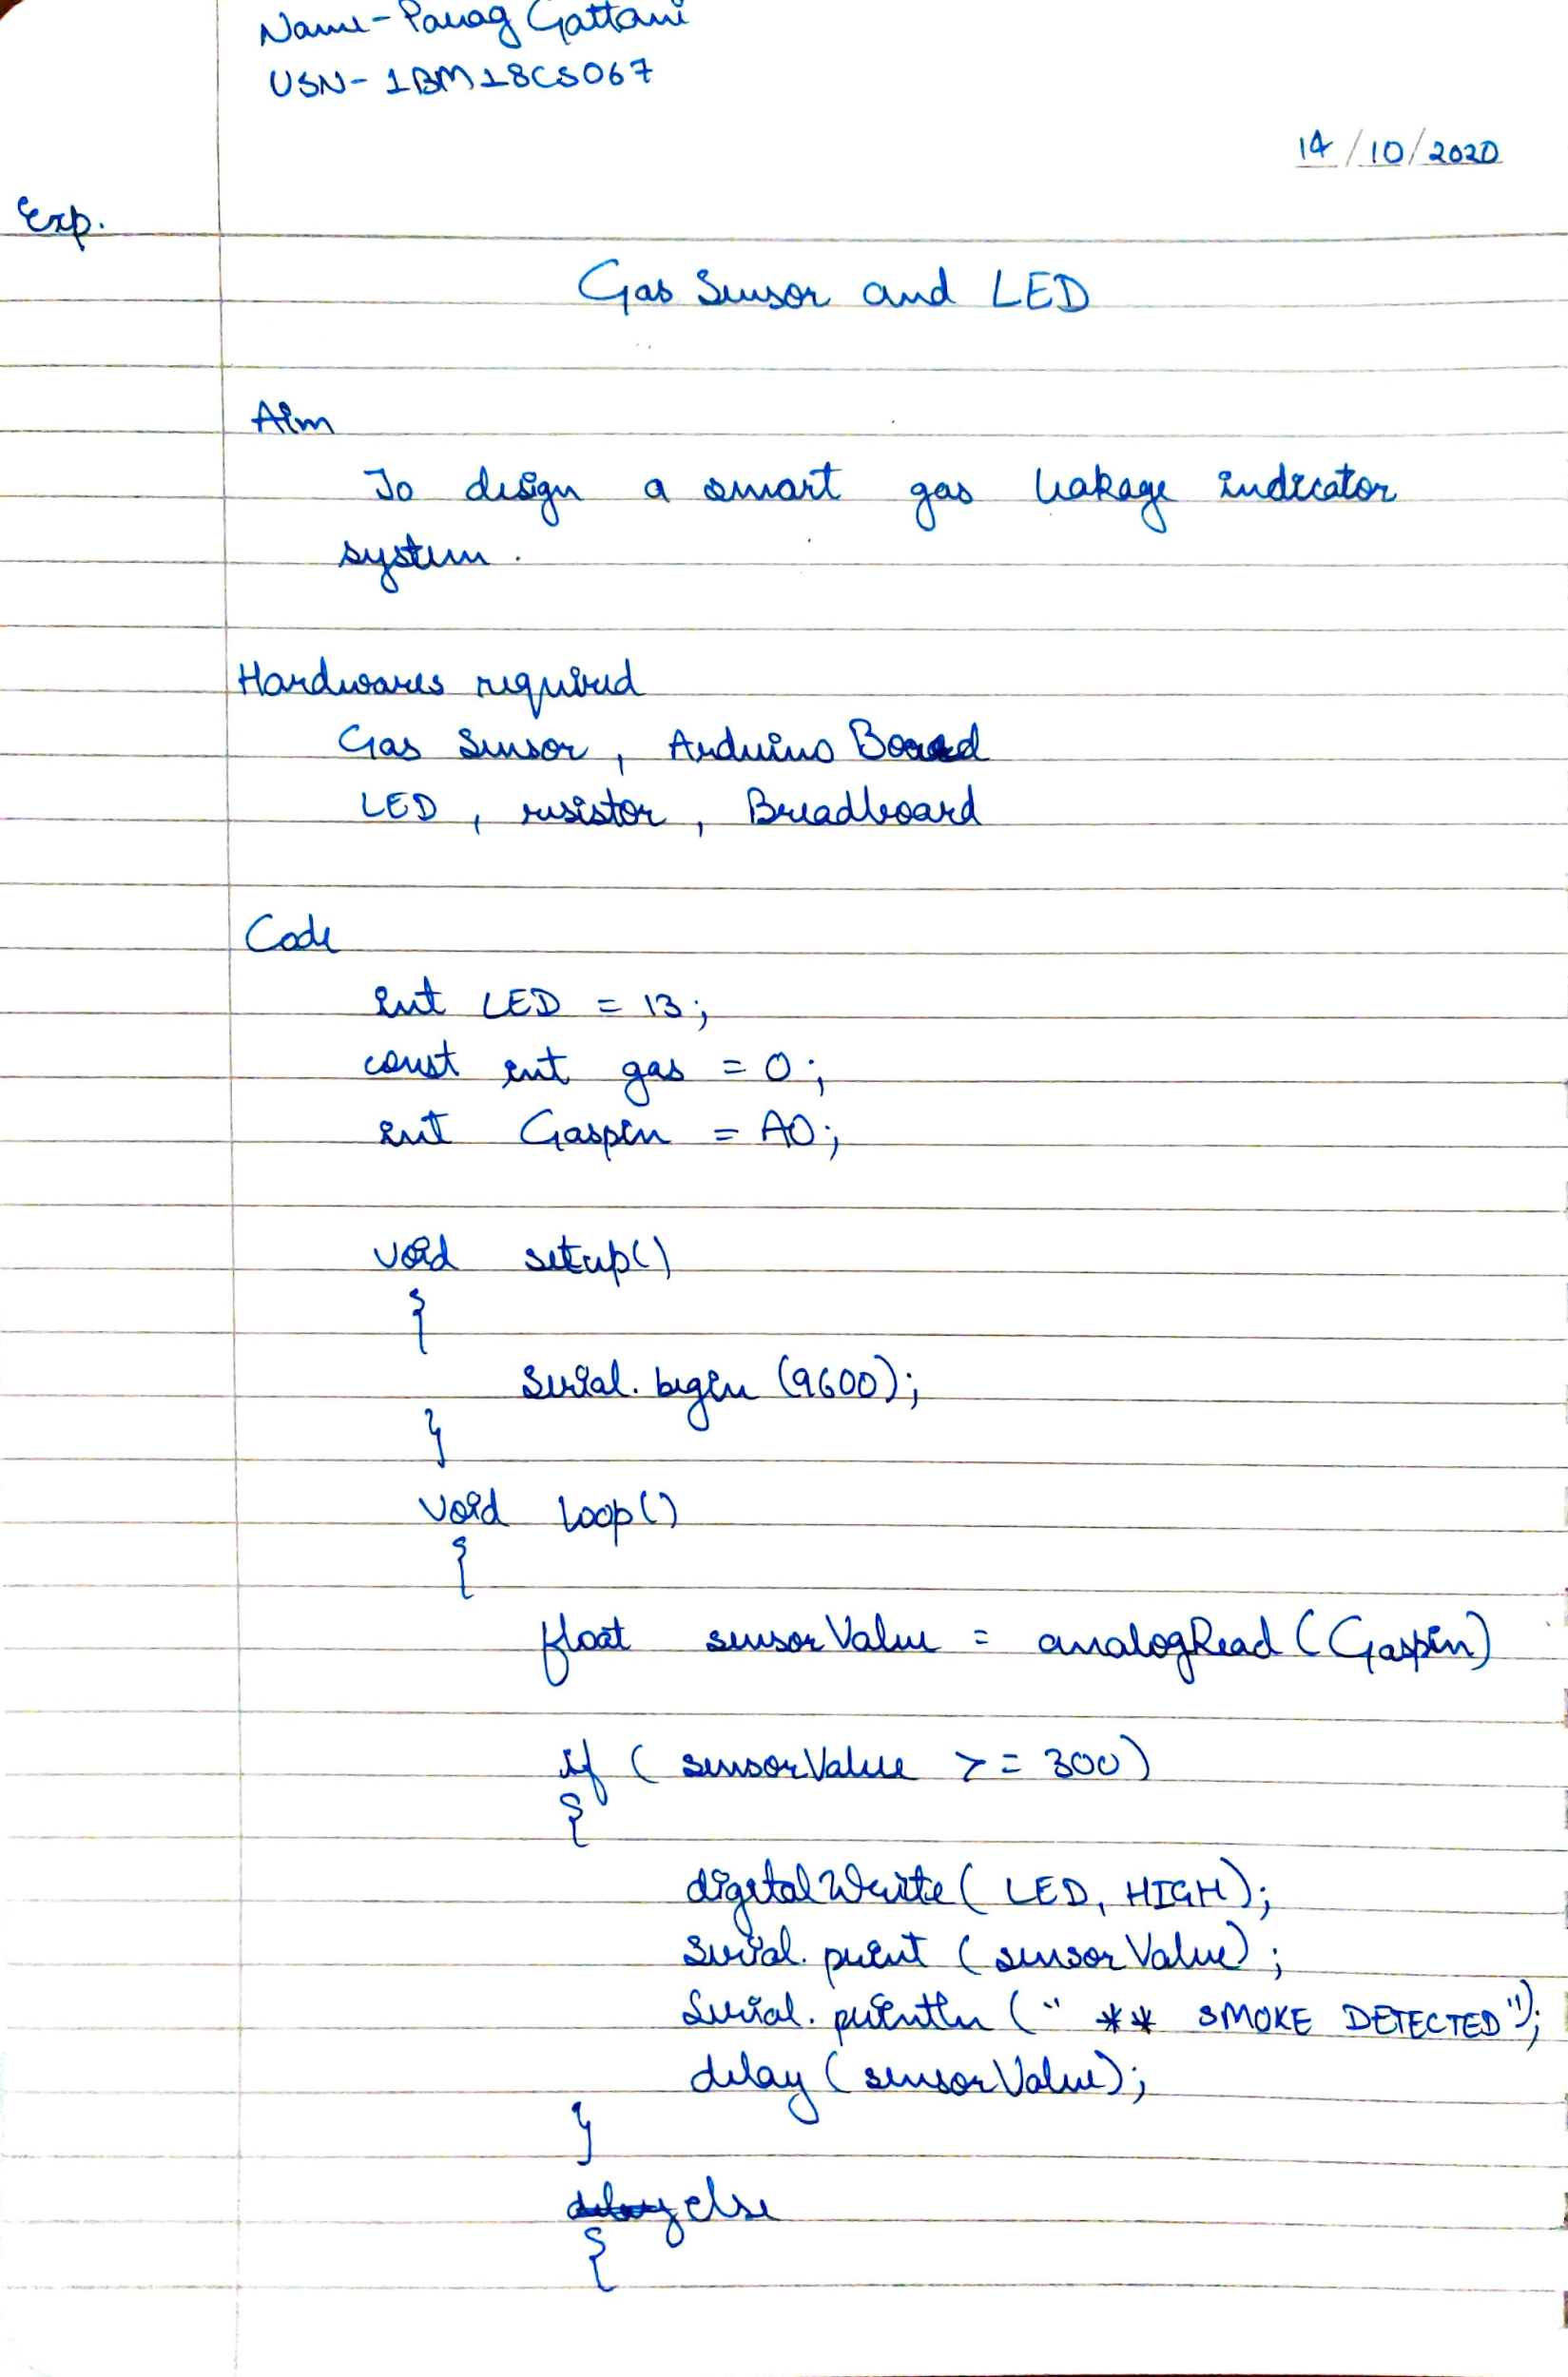 Name- Parag Gattani
USN- 1BM18CS067
14/10/2020
Exp.
Gas Sensor and LED
Aim
To design a smart gas leakage indicator
system.
Hardwares required
Gas Sensor, Arduino Board
LED, resistor, Breadboard
Code
int LED = 13;
const int gas = 0;
int Gaspin = A0;
void setup()
{
Serial.begin (9600);
}
void loop()
{
float sensorValue = analogRead (Gaspin)
if ( sensorValue >= 300)
{
digitalWrite( LED, HIGH);
Serial.print (sensorValue);
Serial.println (" ** SMOKE DETECTED");
delay (sensorValue);
}
delay else
{